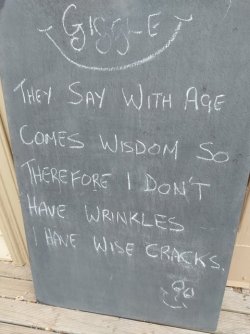 GIGGLE
THEY SAY WITH AGE
COMES WISDOM SO
THEREFORE I DON'T
HAVE WRINKLES
I HAVE WISE CRACKS.